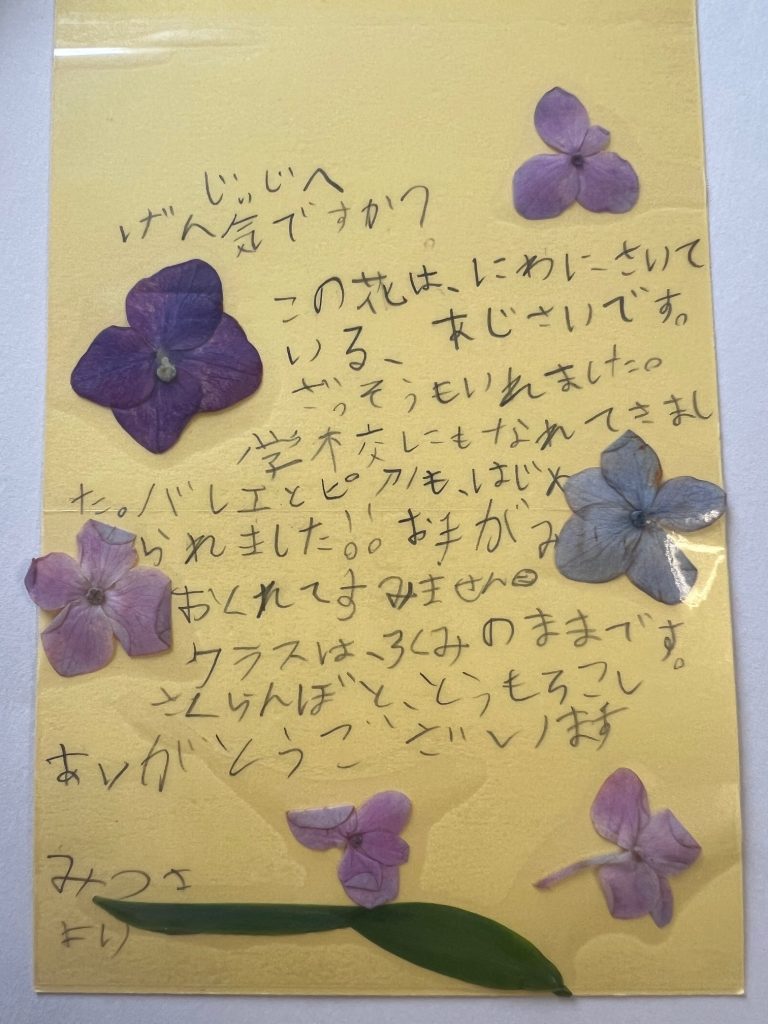 じぃじへ
げん気ですか?
この花は、にわにさいて
いる、あじさいです。
ざっそうもいれました。
学校にもなれてきまし
た。バレエとピアノも、はじめ
られました!!。お手がみ
おくれてすみません
クラスは、ろくみのままです。
さくらんぼと、とうもろこし
ありがとうございます
みつき
より